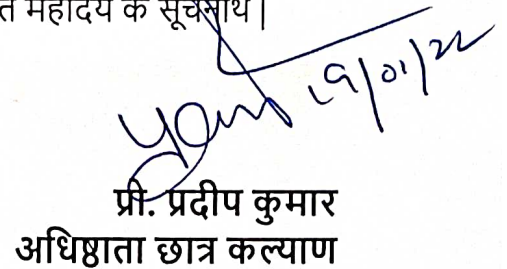 त महोदय के सूचनार्थ |
19/01/22
प्रो. प्रदीप कुमार
अधिष्ठाता छात्र कल्याण